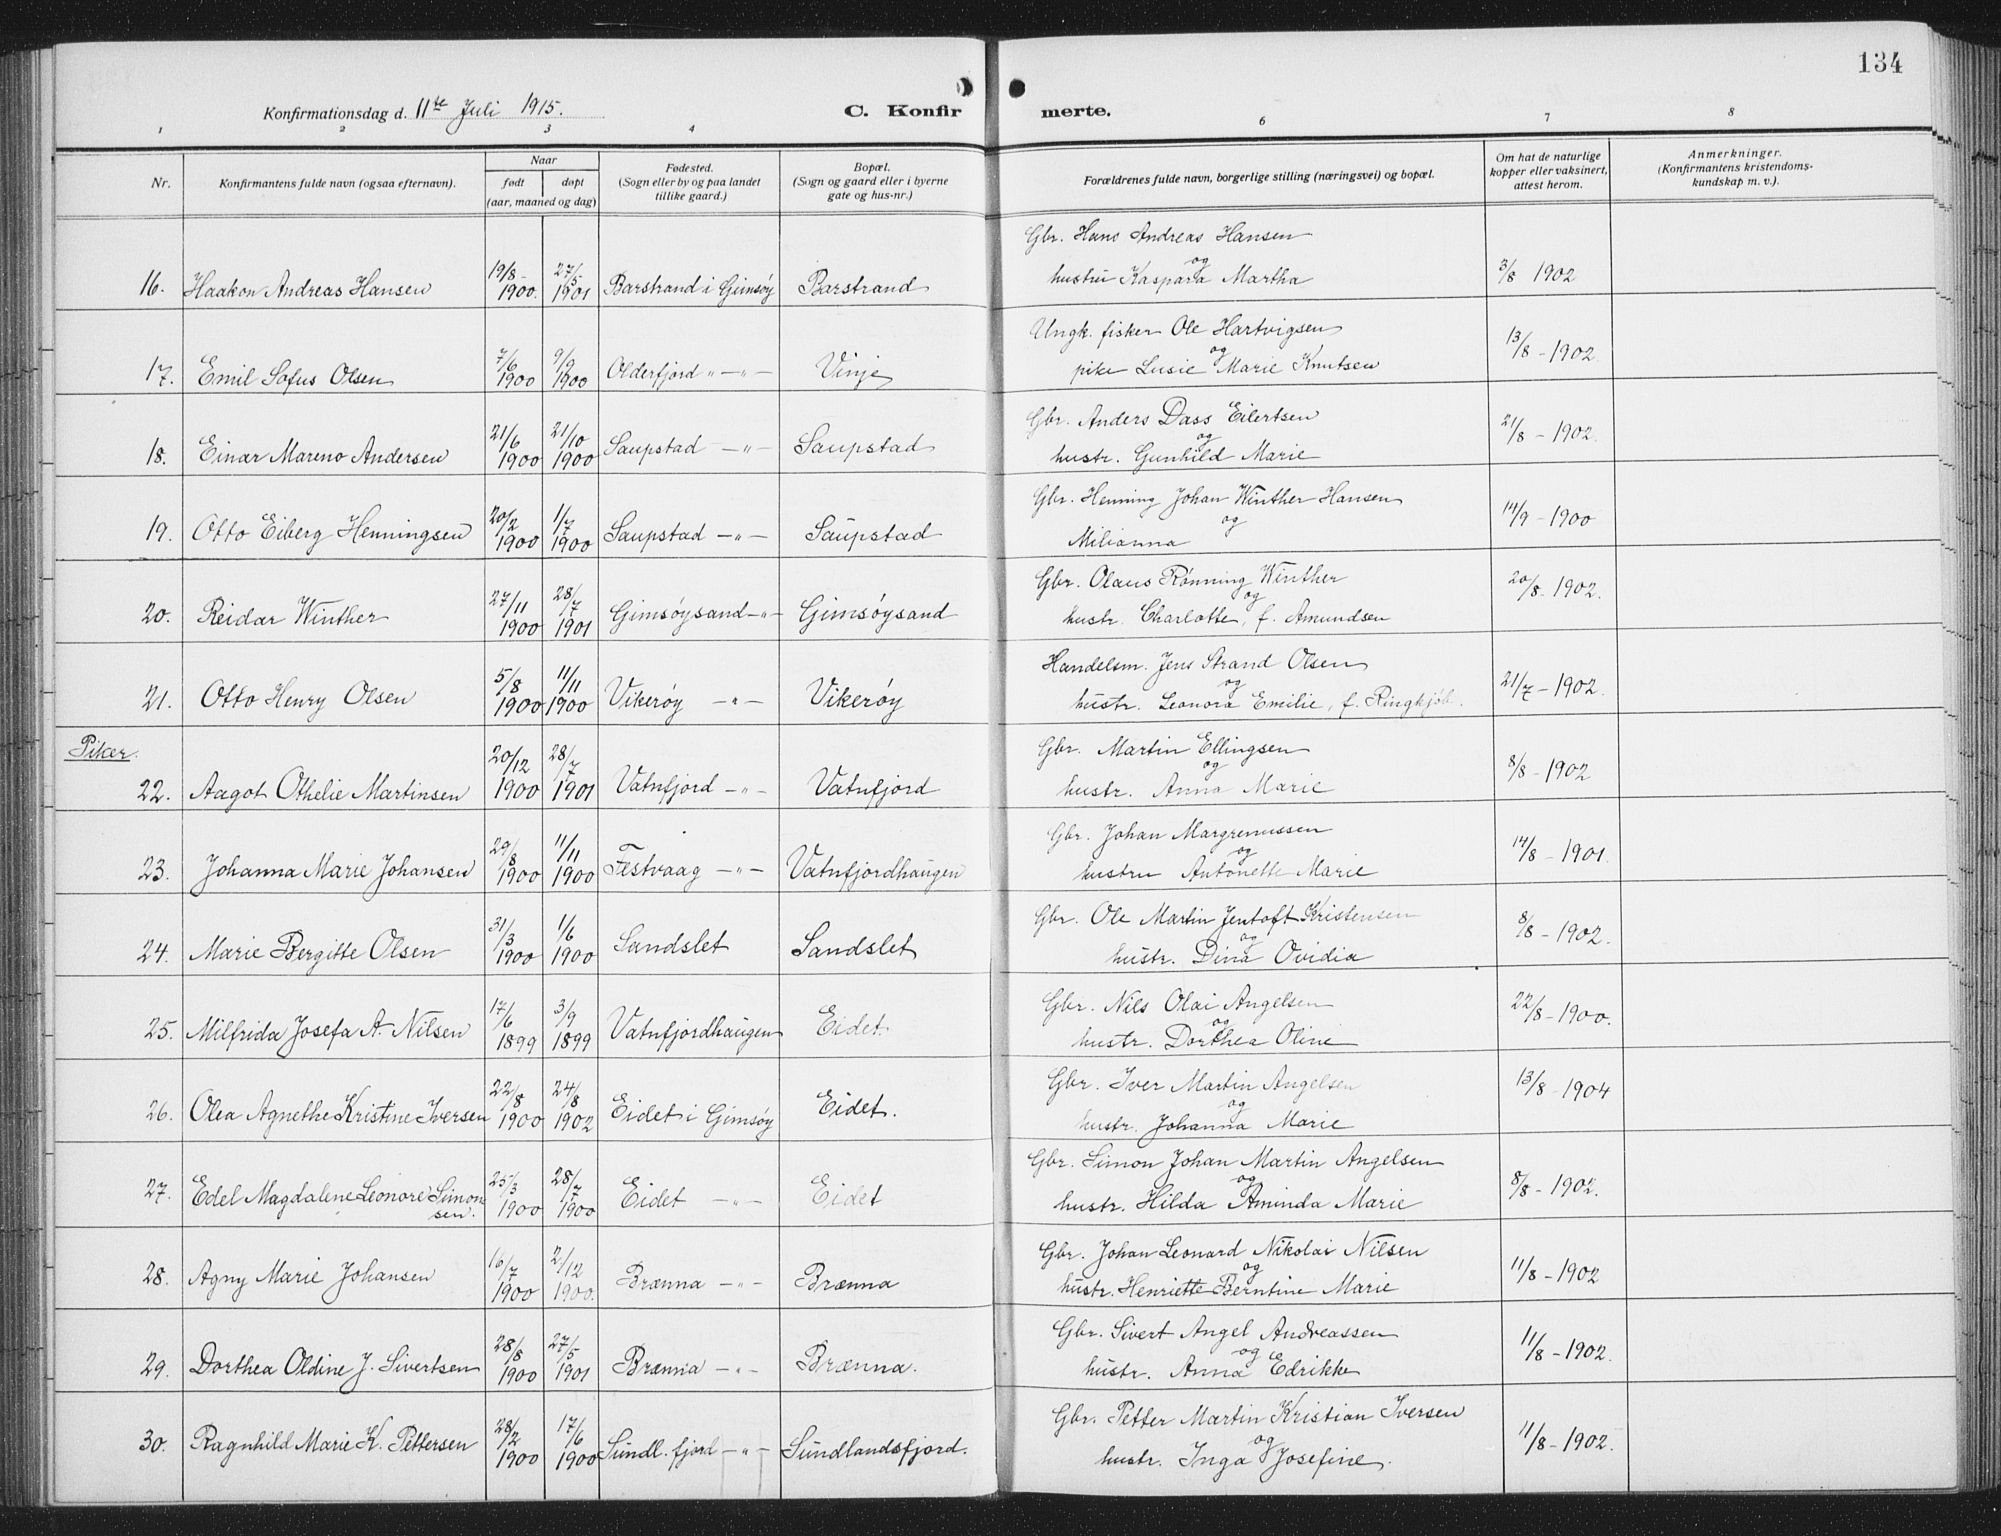 134
Konfirmationsdag d. 11te Juli 1915.
C. Konfirmerte.
1 2 3 4 6 7 8
Nr.
Konfirmantens fulde navn (ogsaa efternavn).
Naar
født
døpt
(aar, maaned og dag)
Fødested.
(Sogn eller by og paa landet
tillike gaard.)
Bopæl.
(Sogn og gaard eller i byerne
gate og hus-nr.)
Forældrenes fulde navn, borgerlige stilling (næringsvei) og bopæl.
Om hat de naturlige
kopper eller vaksinert,
attest herom.
Anmerkninger.
(Konfirmantens kristendoms-
kundskap m. v.).
16. Haakon Andreas Hansen 19/8- 1900. 27/5 1901 Barstrand i Gimsøy Barstrand
Gbr. Hans Andreas Hansen
og
hustru Kaspara Martha
3/8 1902
17. Emil Sofus Olsen 7/6 1900 9/9 1900 Olderfjord „ — „ — Vinje
Ungk. fisker Ole Hartvigsen
og
pike Lusie Marie Knutsen
13/8 - 1902.
18. Einar Mareno Andersen 21/6 1900 21/10 1900 Saupstad — „ — Saupstad
Gbr. Anders Dass Eilertsen
og
hustr. Gunhild Marie
21/8 - 1902.
19. Otto Eiberg Henningsen 20/2 1900 1/7 1900 Saupstad — „ — Saupstad
Gbr. Henning Johan Winther Hansen
og
Milianna
14/9 - 1900
20. Reidar Winther 27/11 1900 28/7 1901 Gimsøysand — „ — Gimsøysand
Gbr. Olaus Rønning Winther
og
hustr. Charlotte, f. Amundsen
20/8 - 1902.
21. Otto Henry Olsen 5/8 1900 11/11 1900 Vikerøy — „ — Vikerøy
Handelsm. Jens Strand Olsen
og
hustr. Leonora Emilie, f. Ringkjøb.
21/7 - 1902.
Piker.
22. Aagot Othelie Martinsen 20/12 1900 28/7 1901 Vatnfjord — „ — Vatnfjord
Gbr. Martin Ellingsen
og
hustr. Anna Marie
8/8 - 1902
23. Johanna Marie Johansen 29/8 1900 11/11 1900 Festvaag — „ — Vatnfjordhaugen
Gbr. Johan Margrenussen
og
hustru Antonette Marie
14/8 - 1901.
24. Marie Bergitte Olsen 31/3 1900 1/6 1900 Sandslet Sandslet
Gbr. Ole Martin Jentoft Kristensen
og
hustr. Dina Ovidia
8/8 - 1902.
25. Milfrida Josefa A. Nilsen 17/6 1899 3/9 1899 Vatnfjordhaugen Eidet.
Gbr. Nils Olai Angelsen
og
hustr. Dorthea Oline
22/8 - 1900.
26. Olea Agnethe Kristine Iversen 22/8 1900 24/8 1902 Eidet i Gimsøy Eidet.
Gbr. Iver Martin Angelsen
og
hustr. Johanna Marie
13/8 - 1904
27. Edel Magdalene Leonore Simon
sen. 25/3 1900 28/7 1900 Eidet — „ — Eidet
Gbr. Simon Johan Martin Angelsen
og
hustr. Hilda Aminda Marie
8/8 - 1902.
28. Agny Marie Johansen 16/7 1900 2/12 1900. Brænna — „ — Brænna
Gbr. Johan Leonard Nikolai Nilsen
og
hustr. Henriette Berntine Marie
11/8 - 1902
29. Dorthea Oldine J. Sivertsen 28/8 1900 27/5 1901 Brænna — „ — Brænna.
Gbr. Sivert Angel Andreassen
og
hustr. Anna Edrikke
11/8 - 1902.
30. Ragnhild Marie K. Pettersen 28/2 1900 17/6 1900 Sundl. fjord — „ — Sundlandsfjord.
Gbr. Petter Martin Kristian Iversen
og
hustr. Inga Josefine.
11/8 - 1902.